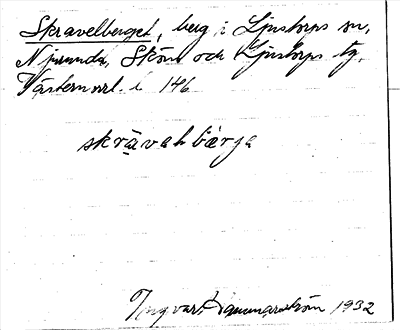 Skravelberget, berg i Ljustorps sn,
Njurunda, Sköns och Ljustorps tg,
Västernorrl. l. 146
skrävahbärja
Ingvar Hammarström 1932